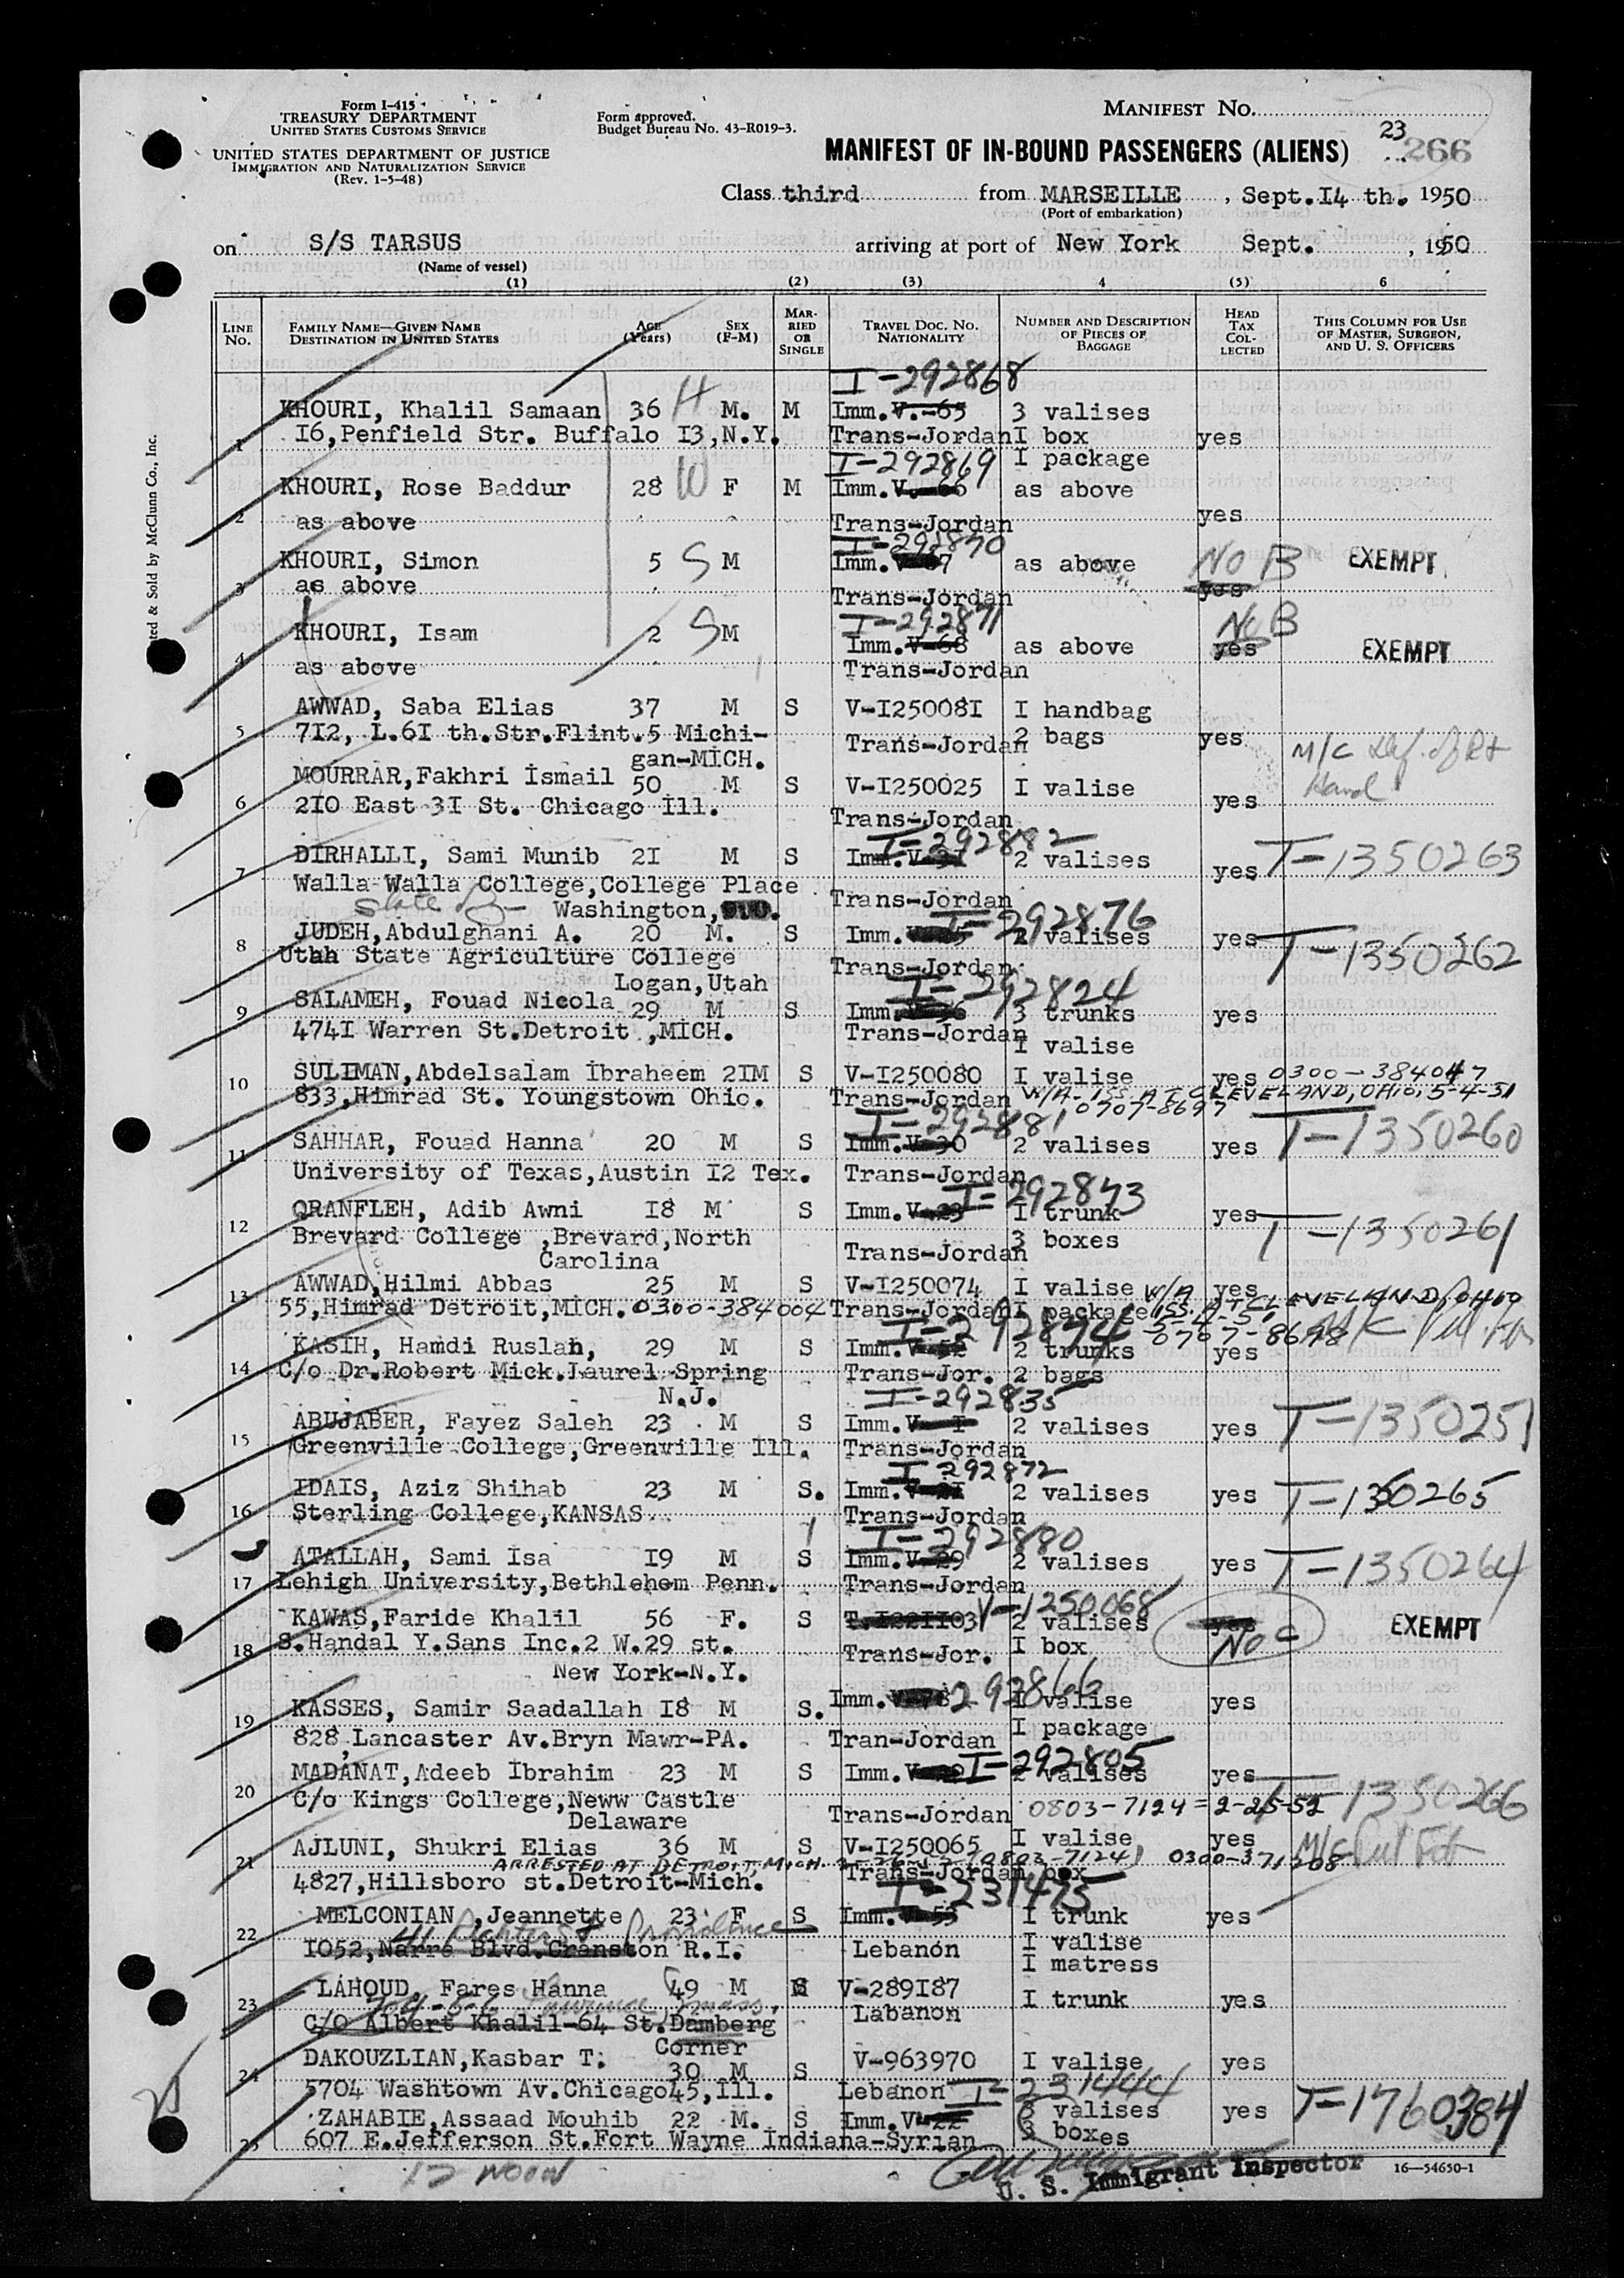 Form I-415
TREASURY DEPARTMENT
UNITED STATES CUSTOMS SERVICE
UNITED STATES DEPARTMENT OF JUSTICE
IMMIGRATION AND NATURALIZATION SERVICE
(Rev. 1-5-48)
Form approved.
Budget Bureau No. 43-R019-3.
MANIFEST No.
23
266
MANIFEST OF IN-BOUND PASSENGERS (ALIENS)
Class third from MARSEILLE , Sept.I4 th. 1950
(Port of embarkation)
on S/S TARSUS arriving at port of New York Sept. , 1950
(Name of vessel)
(1) (2) (3) 4 (5) 6
LINE No.
FAMILY NAME—GIVEN NAME
DESTINATION IN UNITED STATES
AGE (Years)
SEX (F-M)
MARRIED OR SINGLE
TRAVEL DOC. NO. NATIONALITY
NUMBER AND DESCRIPTION OF PIECES OF BAGGAGE
HEAD TAX COLLECTED
THIS COLUMN FOR USE OF MASTER, SURGEON, AND U. S. OFFICERS
I-292868
KHOURI, Khalil Samaan 36 H M. M Imm. V.-65 3 valises
1 I6,Penfield Str. Buffalo I3,N.Y. Trans-Jordan I box yes
I-292869 I package
KHOURI, Rose Baddur 28 W F M Imm.V.-66 as above
2 as above Trans-Jordan yes
I-292870
KHOURI, Simon 5 S M Imm. as above No B EXEMPT
3 as above Trans-Jordan yes
I-292871
KHOURI, Isam 2 S M Imm.V-68 as above No B yes EXEMPT
4 as above Trans-Jordan
AWWAD, Saba Elias 37 M S V-I25008I I handbag
5 7I2, L.6I th.Str.Flint.5 Michi- Trans-Jordan 2 bags yes
gan-MICH. M/C Def. of Rt Hand
MOURRAR,Fakhri Ismail 50 M S V-I250025 I valise
6 2I0 East 3I St. Chicago Ill. Trans-Jordan yes
I-292882
DIRHALLI, Sami Munib 2I M S Imm.V-3I 2 valises yes T-1350263
7 Walla-Walla College,College Place Trans-Jordan
State of Washington,
I-292876
JUDEH,Abdulghani A. 20 M. S Imm. 2 valises yes T-1350262
8 Utah State Agriculture College Trans-Jordan
Logan,Utah
I-292824
SALAMEH, Fouad Nicola 29 M S Imm. 3 trunks yes
9 474I Warren St.Detroit ,MICH. Trans-Jordan I valise
SULIMAN,Abdelsalam Ibraheem 2IM S V-I250080 I valise yes 0300-384047
10 833,Himrad St. Youngstown Ohio. Trans-Jordan W/A-ISS. AT CLEVELAND, OHIO, 5-4-51
0707-8697
I-292881
SAHHAR, Fouad Hanna 20 M S Imm.V-30 2 valises yes T-1350260
11 University of Texas,Austin I2 Tex. Trans-Jordan
I-292873
QRANFLEH, Adib Awni I8 M S Imm.V-23 I trunk yes T-1350261
12 Brevard College ,Brevard,North Trans-Jordan 3 boxes
Carolina
AWWAD,Hilmi Abbas 25 M S V-I250074 I valise W/A yes
13 55,Himrad Detroit,MICH. 0300-384004 Trans-Jordan I package ISS. AT CLEVELAND, OHIO
I-292874 5-4-51 0707-8698
KASIH, Hamdi Ruslan, 29 M S Imm. 2 trunks yes
14 C/o Dr.Robert Mick.Laurel Spring Trans-Jor. 2 bags
N.J.
I-292835
ABUJABER, Fayez Saleh 23 M S Imm.V-I 2 valises yes T-1350251
15 Greenville College,Greenville Ill. Trans-Jordan
I-292872
IDAIS, Aziz Shihab 23 M S. Imm.V-2I 2 valises yes T-1350265
16 Sterling College,KANSAS Trans-Jordan
I-292880
ATALLAH, Sami Isa I9 M S Imm.V-29 2 valises yes T-1350264
17 Lehigh University,Bethlehem Penn. Trans-Jordan
KAWAS,Faride Khalil 56 F. S V-1250068 2 valises yes No C EXEMPT
18 S.Handal Y.Sans Inc.2 W.29 st. Trans-Jor. I box
New York-N.Y.
KASSES, Samir Saadallah I8 M S. Imm. 292866 I valise yes
19 828,Lancaster Av.Bryn Mawr-PA. Tran-Jordan I package
MADANAT,Adeeb Ibrahim 23 M S Imm. I-292805 2 valises yes T-1350266
20 C/o Kings College,Neww Castle Trans-Jordan 0803-7124 = 2-25-52
Delaware
AJLUNI, Shukri Elias 36 M S V-I250065 I valise yes
21 ARRESTED AT DETROIT, MICH. (0803-7124) 0300-371208
4827,Hillsboro st.Detroit-Mich. Trans-Jordan box
I-231475
MELCONIAN ,Jeannette 23 F S Imm.V-53 I trunk yes
22 Providence
I052,Narre Blvd.Cranston R.I. Lebanon I valise
I matress
LAHOUD, Fares Hanna 49 M V-289I87 I trunk yes
23 Lawrence Mass. Labanon
C/O Albert Khalil-64 St.Damberg
Corner
DAKOUZLIAN,Kasbar T. 30 M S V-963970 I valise yes
24 5704 Washtown Av.Chicago45,Ill. Lebanon
I-231444
ZAHABIE,Assaad Mouhib 22 M. S Imm.V-22 valises yes T-1760384
25 607 E.Jefferson St.Fort Wayne Indiana-Syrian boxes
12 NOON
U. S. Immigrant Inspector
16—54650-1
& Sold by McClunn Co., Inc.